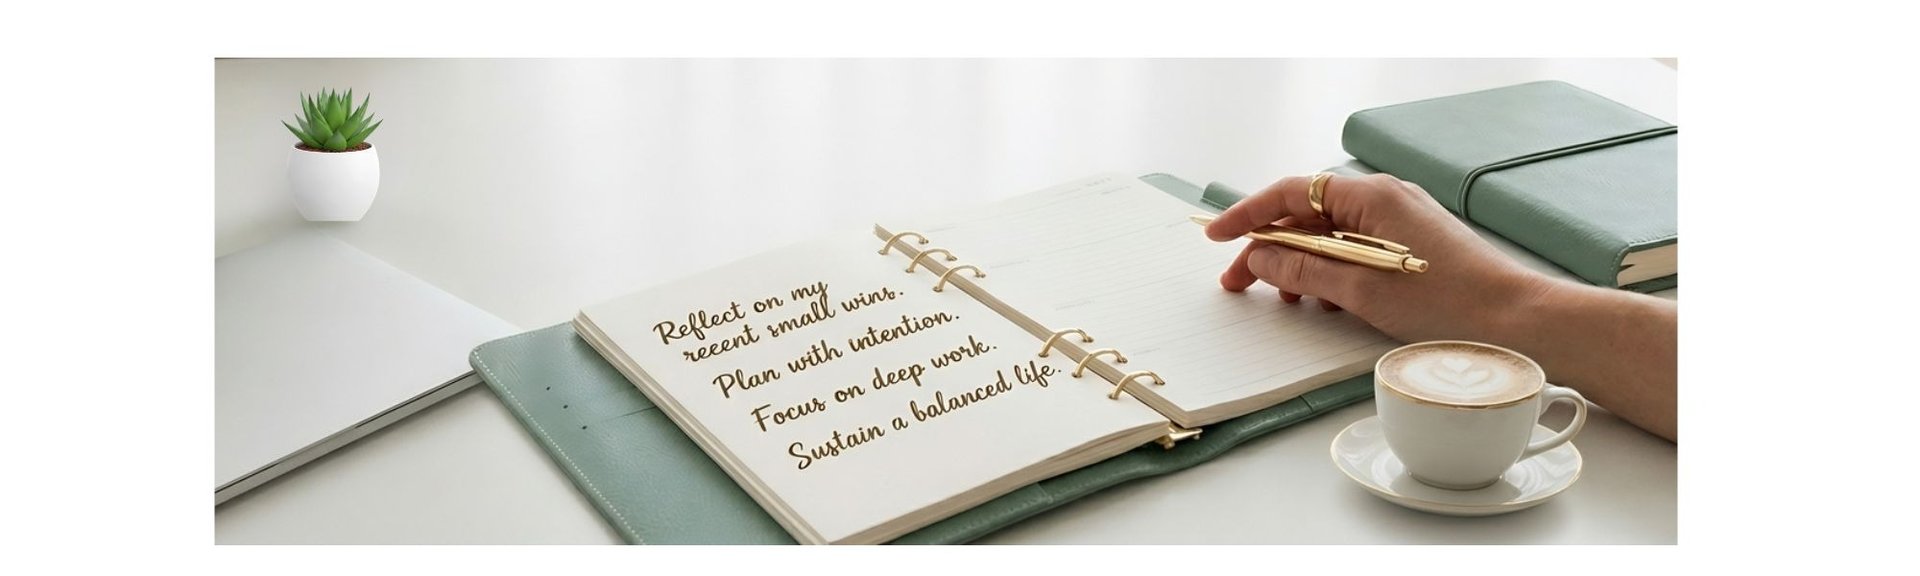 Reflect on my
recent small wins.
Plan with intention.
Focus on deep work.
Sustain a balanced life.